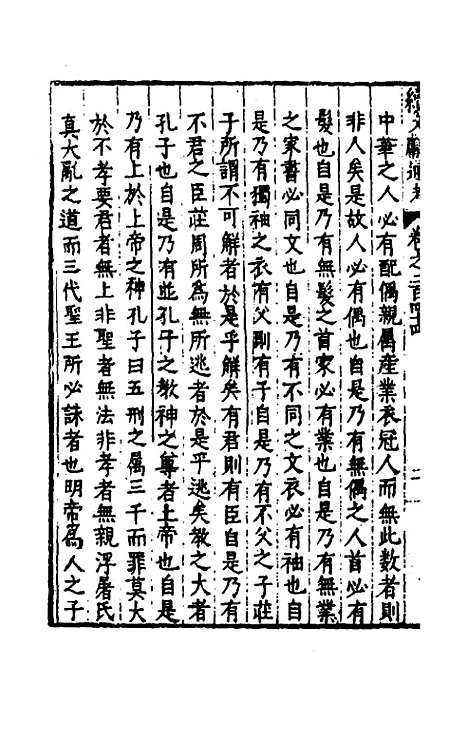 續文獻通考 卷之二百四
中華之人必有配偶親屬產業衣冠人而無此數者則
非人矣是故人必有偶也自是乃有無偶之人首必有
髮也自是乃有無髮之首家必有業也自是乃有無業
之家書必同文也自是乃有不同之文衣必有袖也自
是乃有獨袖之衣有父則有子自是乃有不父之子莊
子所謂不可解者於是乎解矣有君則有臣自是乃有
不君之臣莊周所為無所逃者於是乎逃矣教之大者
孔子也自是乃有並孔子之教神之尊者上帝也自是
乃有上於上帝之神孔子曰五刑之屬三千而罪莫大
於不孝要君者無上非聖者無法非孝者無親浮屠氏
真大亂之道而三代聖王所必誅者也明帝為人之子